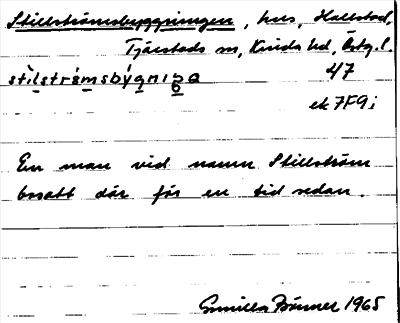 Stillströmsbyggningen, hus, Hallstad,
Tjärstads sn, Kinda hd, Östg. l.
47
ek 7F9i
En man vid namn Stillström
bosatt där för en tid sedan.
Gunilla 1965